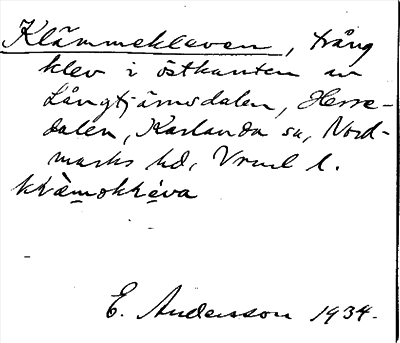 Klämmekleven, trång
klev i östkanten av
Långtjärnsdalen, Herre-
dalen, Karlanda sn, Nord-
marks hd, Vrml l.
klämokléva
E. Andersson 1934.